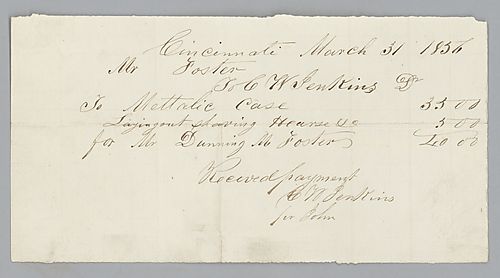 Cincinnati March 31 1856
Mr Foster
To C W Jenkins Dr
To Mettalic Case 35 00
Layingout shaving Hearse &c 5 00
for Mr Dunning M Foster 40 00
Received payment
C W Jenkins
per John